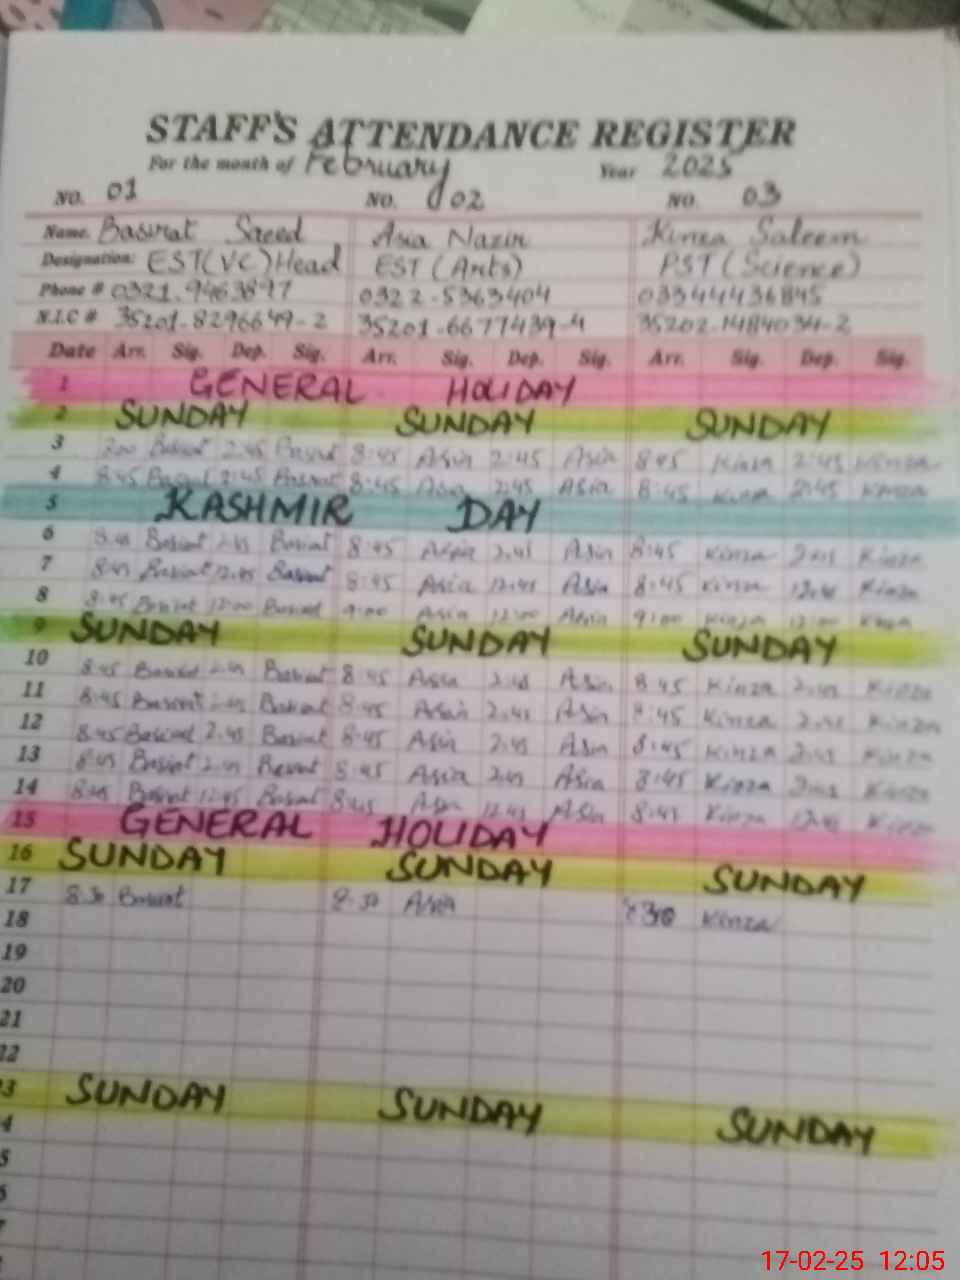 STAFF'S ATTENDANCE REGISTER
For the month of February Year 2025
NO. 01 NO. 02 NO. 03
Name. Basirat Saeed Asia Nazir Kinza Saleem
Designation: EST(VC)Head EST (Arts) PST (Science)
Phone # 0321.9463897 0322-5363404 03344436845
N.I.C # 35201-8296649-2 35201-6677439-4 35202-1484034-2
Date Arr. Sig. Dep. Sig. Arr. Sig. Dep. Sig. Arr. Sig. Dep. Sig.
1 GENERAL HOLIDAY
2 SUNDAY SUNDAY SUNDAY
3 Basirat 2:45 Basirat 8:45 Asia 2:45 Asia 8:45 Kinza 2:45 Kinza
4 8:45 Basirat 2:45 Basirat 8:45 Asia 2:45 Asia 8:45 Kinza 2:45 Kinza
5 KASHMIR DAY
6 8:45 Basirat 2:45 Basirat 8:45 Asia 2:45 Asia 8:45 Kinza 2:45 Kinza
7 8:45 Basirat 12:45 Basirat 8:45 Asia 12:45 Asia 8:45 Kinza 12:45 Kinza
8 8:45 Basirat 12:00 Basirat 9:00 Asia 12:00 Asia 9:00 Kinza 12:00 Kinza
9 SUNDAY SUNDAY SUNDAY
10 8:45 Basirat 2:45 Basirat 8:45 Asia 2:45 Asia 8:45 Kinza 2:45 Kinza
11 8:45 Basirat 2:45 Basirat 8:45 Asia 2:45 Asia 8:45 Kinza 2:45 Kinza
12 8:45 Basirat 2:45 Basirat 8:45 Asia 2:45 Asia 8:45 Kinza 2:45 Kinza
13 8:45 Basirat 2:45 Basirat 8:45 Asia 2:45 Asia 8:45 Kinza 2:45 Kinza
14 8:45 Basirat 12:45 Basirat 8:45 Asia 12:45 Asia 8:45 Kinza 12:45 Kinza
15 GENERAL HOLIDAY
16 SUNDAY SUNDAY SUNDAY
17 8:30 Basirat 8:30 Asia 8:30 Kinza
18
19
20
21
22
3 SUNDAY SUNDAY SUNDAY
4
5
6
7
17-02-25 12:05